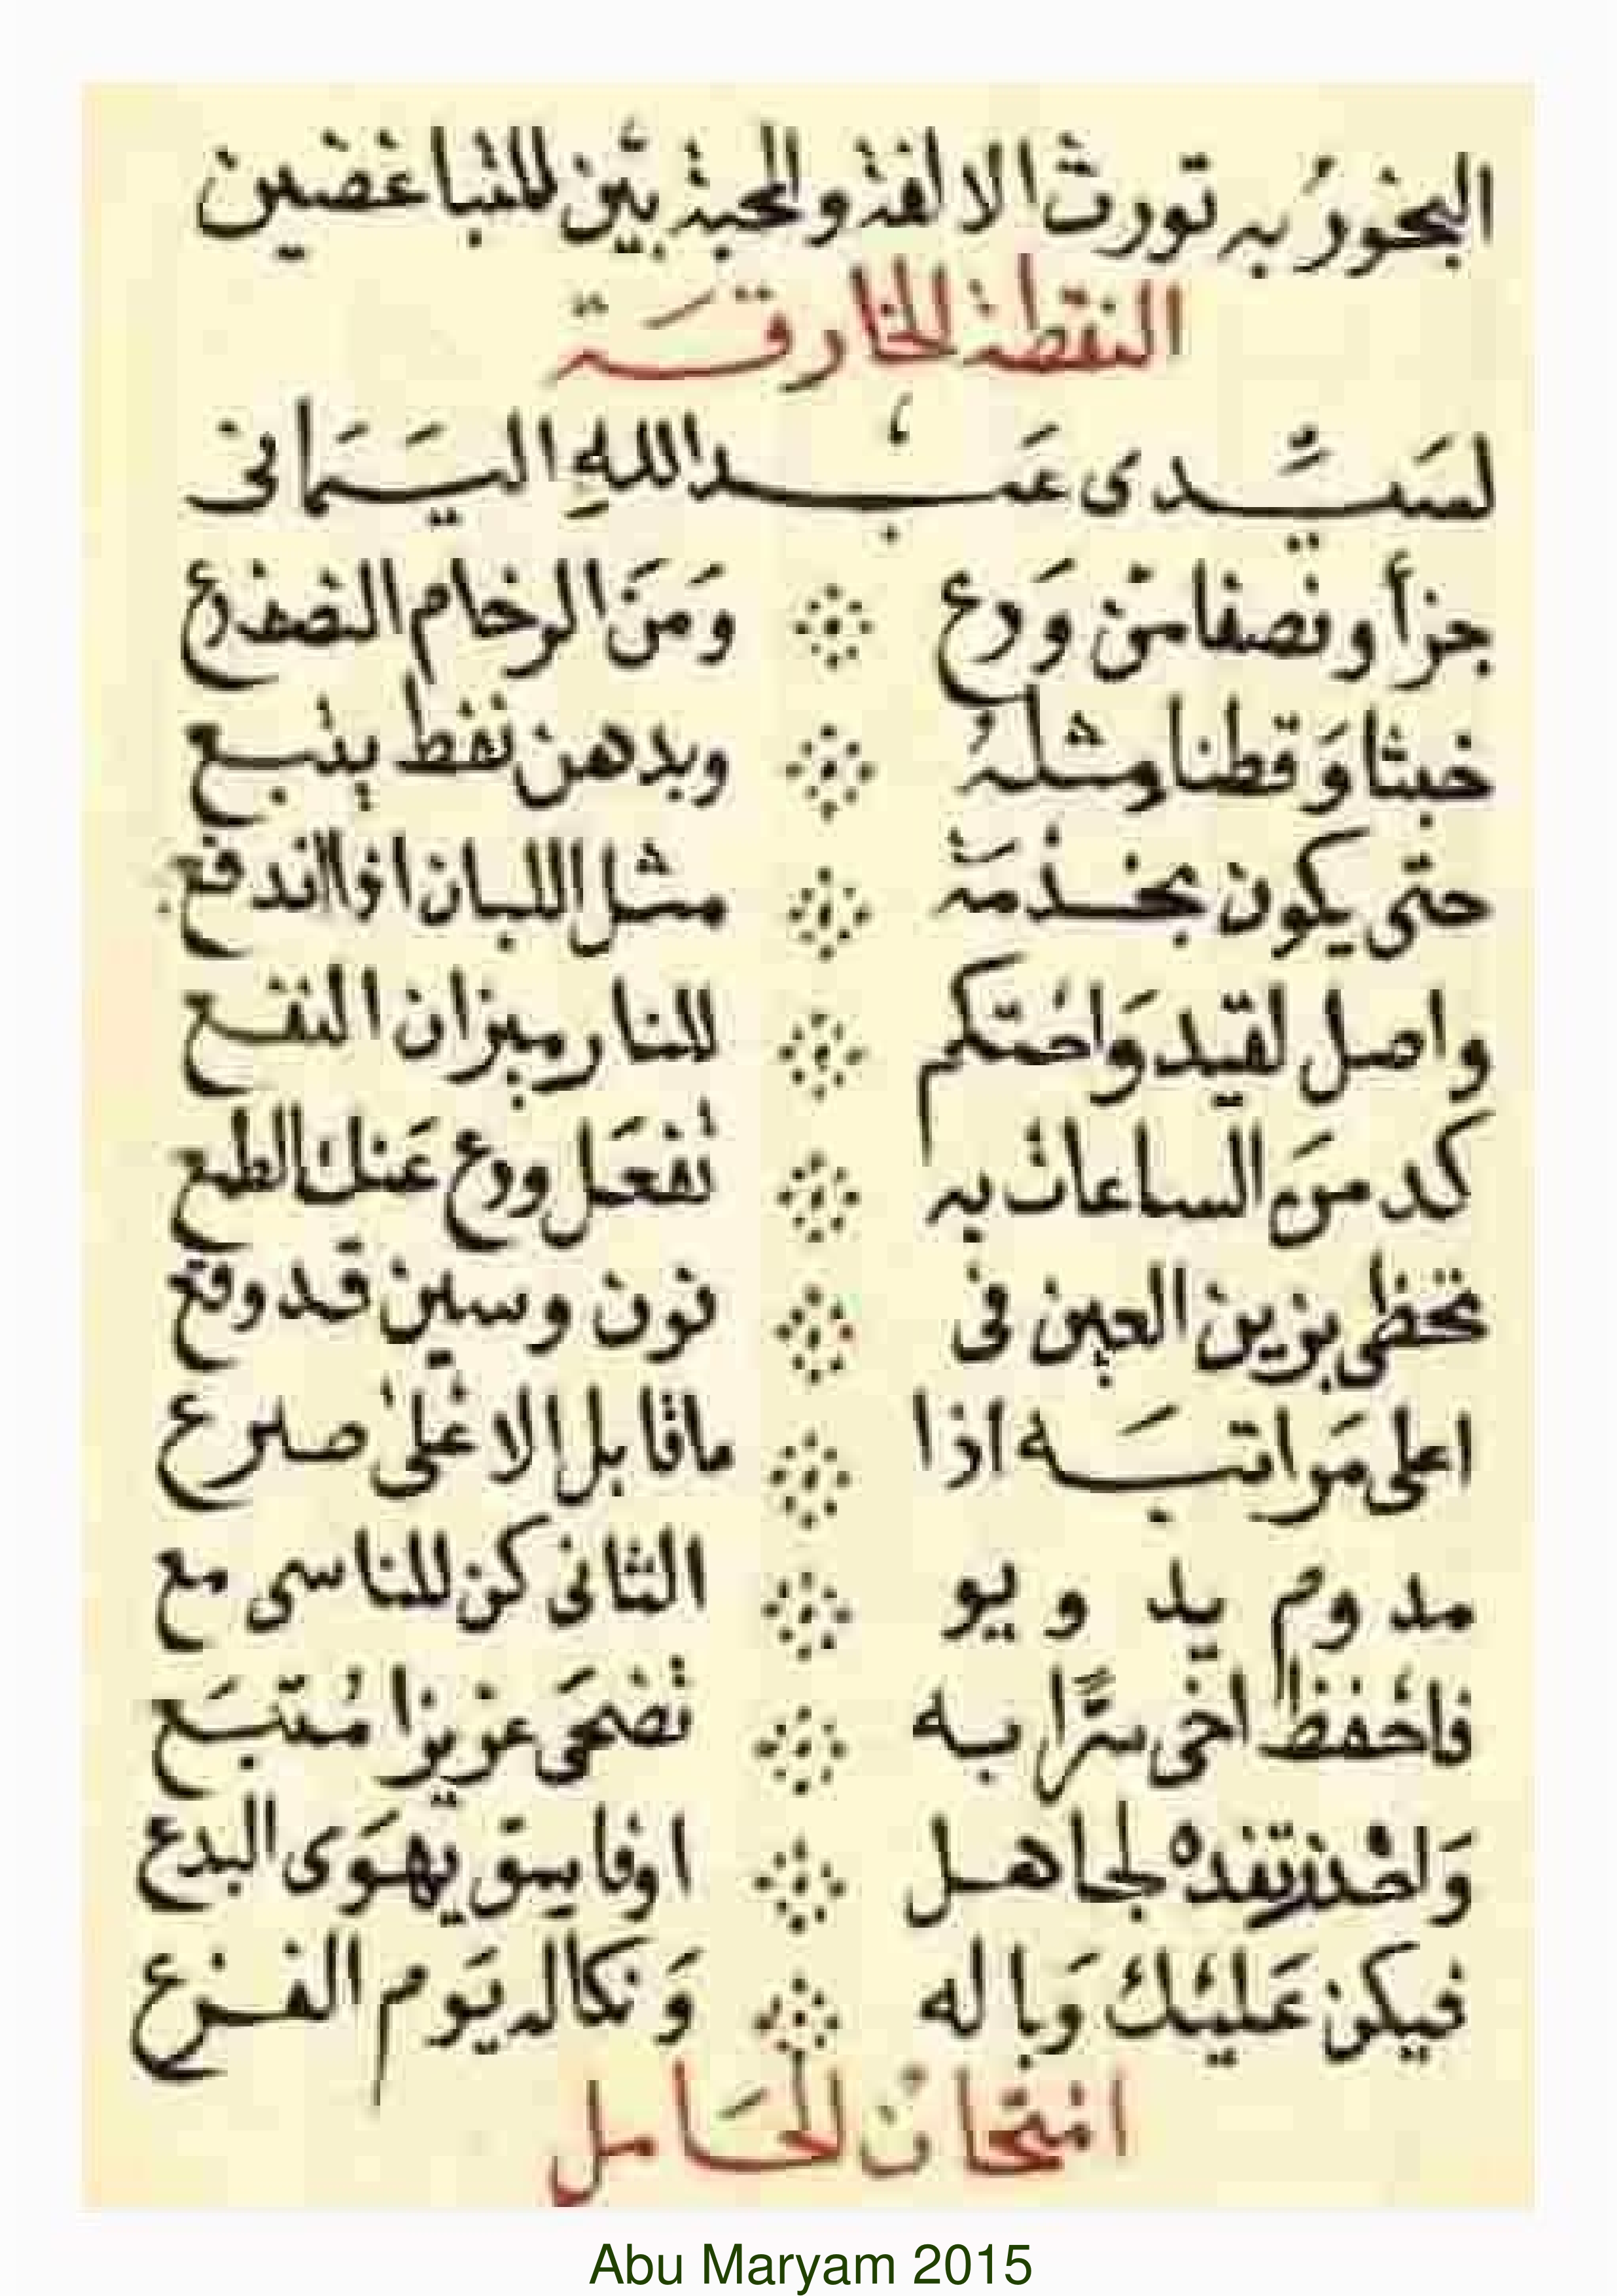 البخور به تورث الالفة والمحبة بين المتباغضين
النقطة الخارقة
لسيدى عبد الله اليمانى
جزأ ونصفا من ودع ومن الرخام النصف رع
خبثا وقطنا مثله وبدهن نفط يتبع
حتى يكون بخدمة مثل اللبان اذا اندفع
واصل لقيد واحتكم للنار ميزان النفع
كد من الساعات به تفعل ودع عنك الطمع
تحظى بزين العين فى نون وسين قد وقع
اعلى مراتبه اذا ماقابل الاعلى صرع
مد وم يد و يو الثانى كن للناسى مع
فاحفظ اخى سرا به تضحى عزيزا متبع
ولحذر تفده لجاهل اوفاسق يهوى البدع
فيكن عليك وباله ونكاله يوم الفزع
امتحان الحامل
Abu Maryam 2015